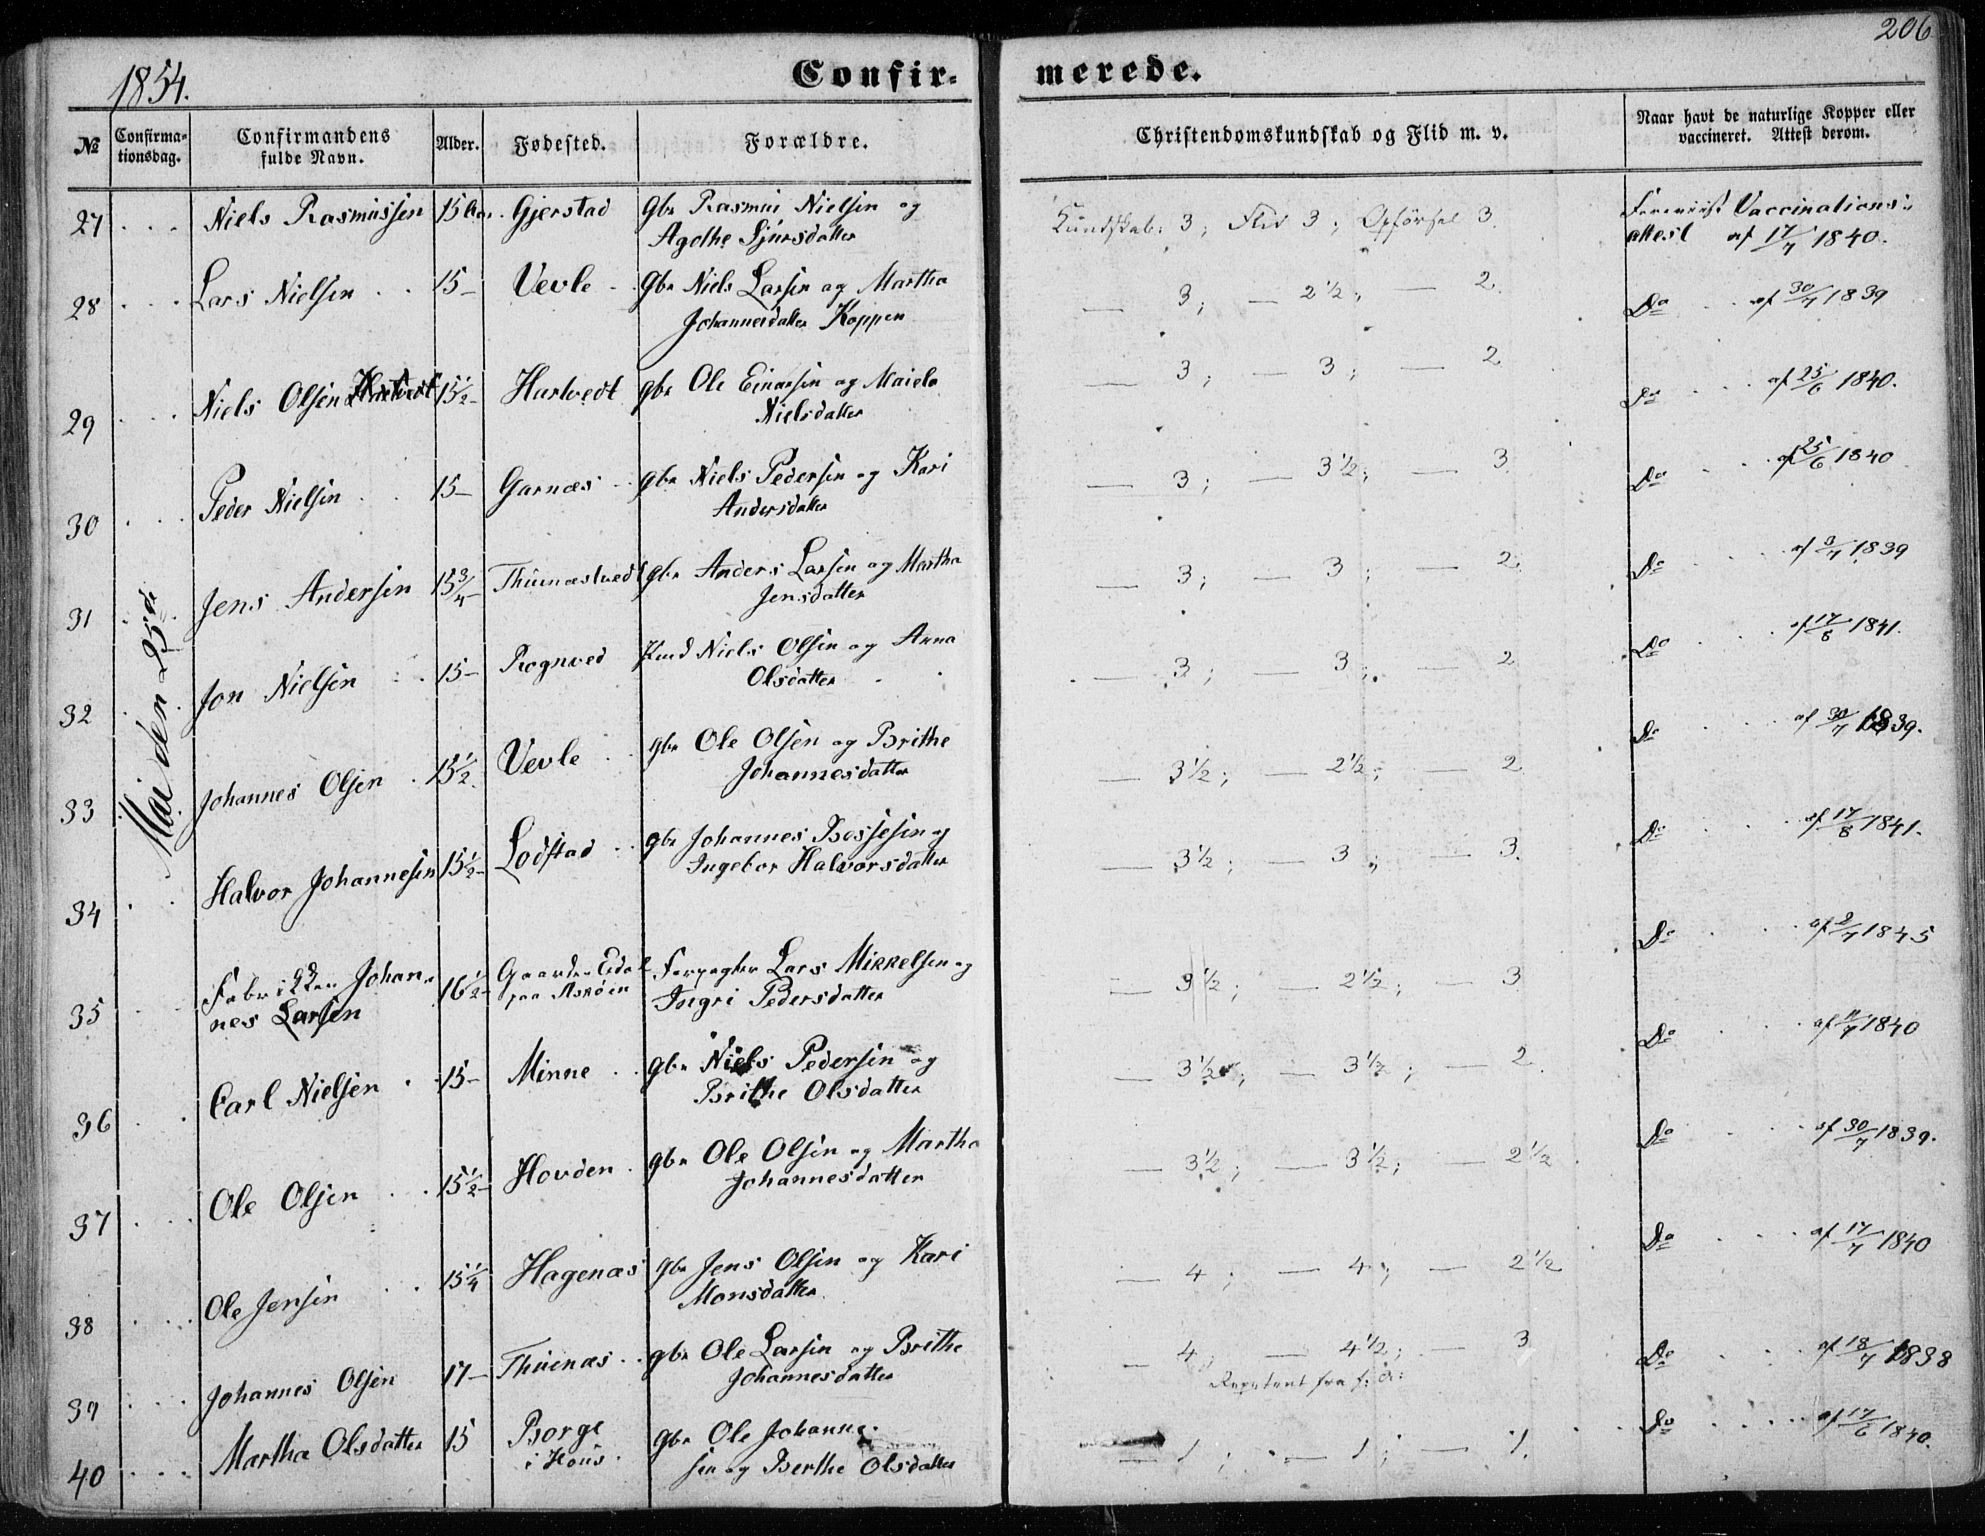 206
1854.
Confir- merede.
№ Confirma-tionsdag. Confirmandens fulde Navn. Alder. Fødested. Forældre. Christendomskundskab og Flid m. v. Naar havt de naturlige Kopper eller vaccineret. Attest derom.
Mai den 25de
27 Niels Rasmussen 15 Aar Gjerstad Gbr Rasmus Nielsen og Kundskab: 3; Flid 3; Opførsel 3. Foreviist Vaccinations-
Agathe Sjursdatter attest af 17/7 1840.
28 Lars Nielsen 15 — Vevle Gbr Niels Larsen og Martha — 3; — 2½; — 2. Do af 30/7 1839
Johannesdatter Koppen
29 Niels Olsen Hartvedt 15½ — Hartvedt gbr Ole Einarsen og Maiela — 3; — 3; — 2 Do af 25/6 1840.
Nielsdatter
30 Peder Nielsen 15 — Garnæs gbr Niels Pedersen og Kari — 3; — 3½; — 3 Do af 25/6 1840
Andersdatter
31 Jens Andersen 15¾ — Thunæstvedt gbr Anders Larsen og Martha — 3; — 3; — 2. Do af 3/7 1839
Jensdatter
32 Jon Nielsen 15 — Rognved Huusmd Niels Olsen og Anna — 3; — 3; — 2 Do af 17/8 1841.
Olsdatter
33 Johannes Olsen 15½ Vevle gbr Ole Olsen og Brithe — 3½; — 2½; — 2 Do af 30/7 1839.
Johannesdatter
34 Halvor Johannesen 15½ — Lodstad gbr Johannes Bossesen og — 3½; — 3; — 3. Do af 17/8 1841.
Ingebor Halvorsdatter
35 Johan- 16½ — Gaarden Eidet Forpagter Lars Mikkelsen og — 3½; — 2½; — 3 Do af 2/7 1845
nes Larsen paa Askøen Ingri Pedersdatter
36 Carl Nielsen 15 — Minne gbr Niels Pedersen og — 3½; — 3½; — 2. Do 1840
Brithe Olsdatter
37 Ole Olsen 15½ — Hovden gbr Ole Olsen og Martha — 3½; — 3½; — 2½ Do af 30/7 1839.
Johannesdatter
38 Ole Jensen 15¼ Hagenæs gbr Jens Olsen og Kari — 4; — 4; — 2½ Do af 17/7 1840
Monsdatter
39 Johannes Olsen 17 — Thuenæs gbr Ole Larsen og Brithe — 4; — 4½; — 3 Do af 18/7 1838
Johannesdatter Repetent fra f: A:
40 Martha Olsdatter 15 Borge gbr Ole Johanne- — 1; — 1; — 1. Do af 17/6 1840.
i Hous sen og Berthe Olsdatter